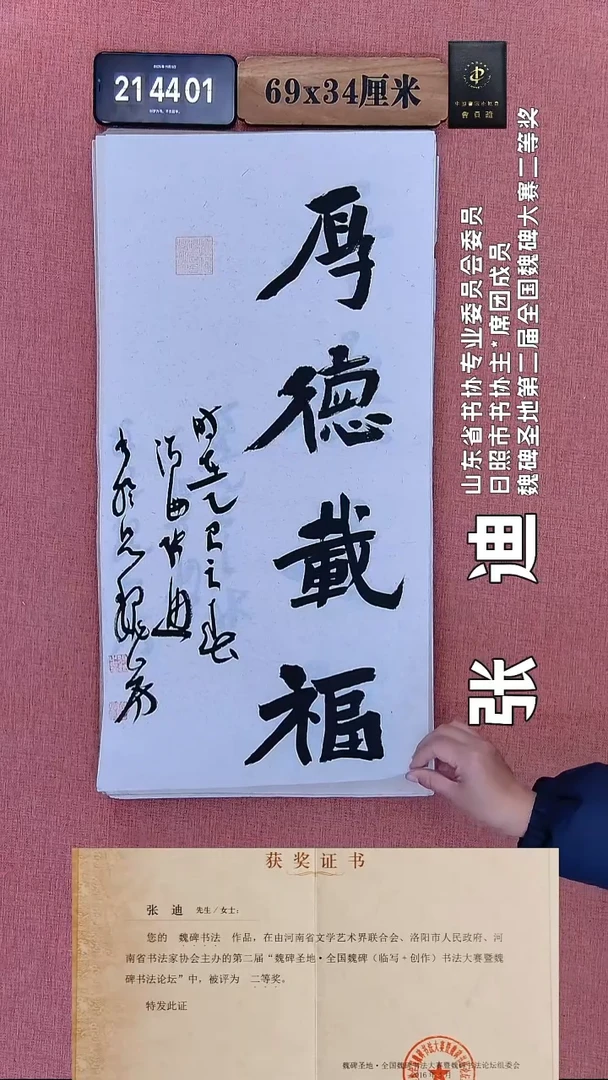 21 44 01
69x34厘米
厚德載福
时在乙巳之春
山东省书协专业委员会委员
日照市书协主*席团成员
魏碑圣地第二届全国魏碑大赛二等奖
张 迪
获奖证书
张 迪 先生/女士:
您的 魏碑书法 作品，在由河南省文学艺术界联合会、洛阳市人民政府、河
南省书法家协会主办的第二届“魏碑圣地·全国魏碑（临写+创作）书法大赛暨魏
碑书法论坛”中，被评为 二等奖。
特发此证
魏碑圣地·全国魏碑书法大赛暨魏碑书法论坛组委会